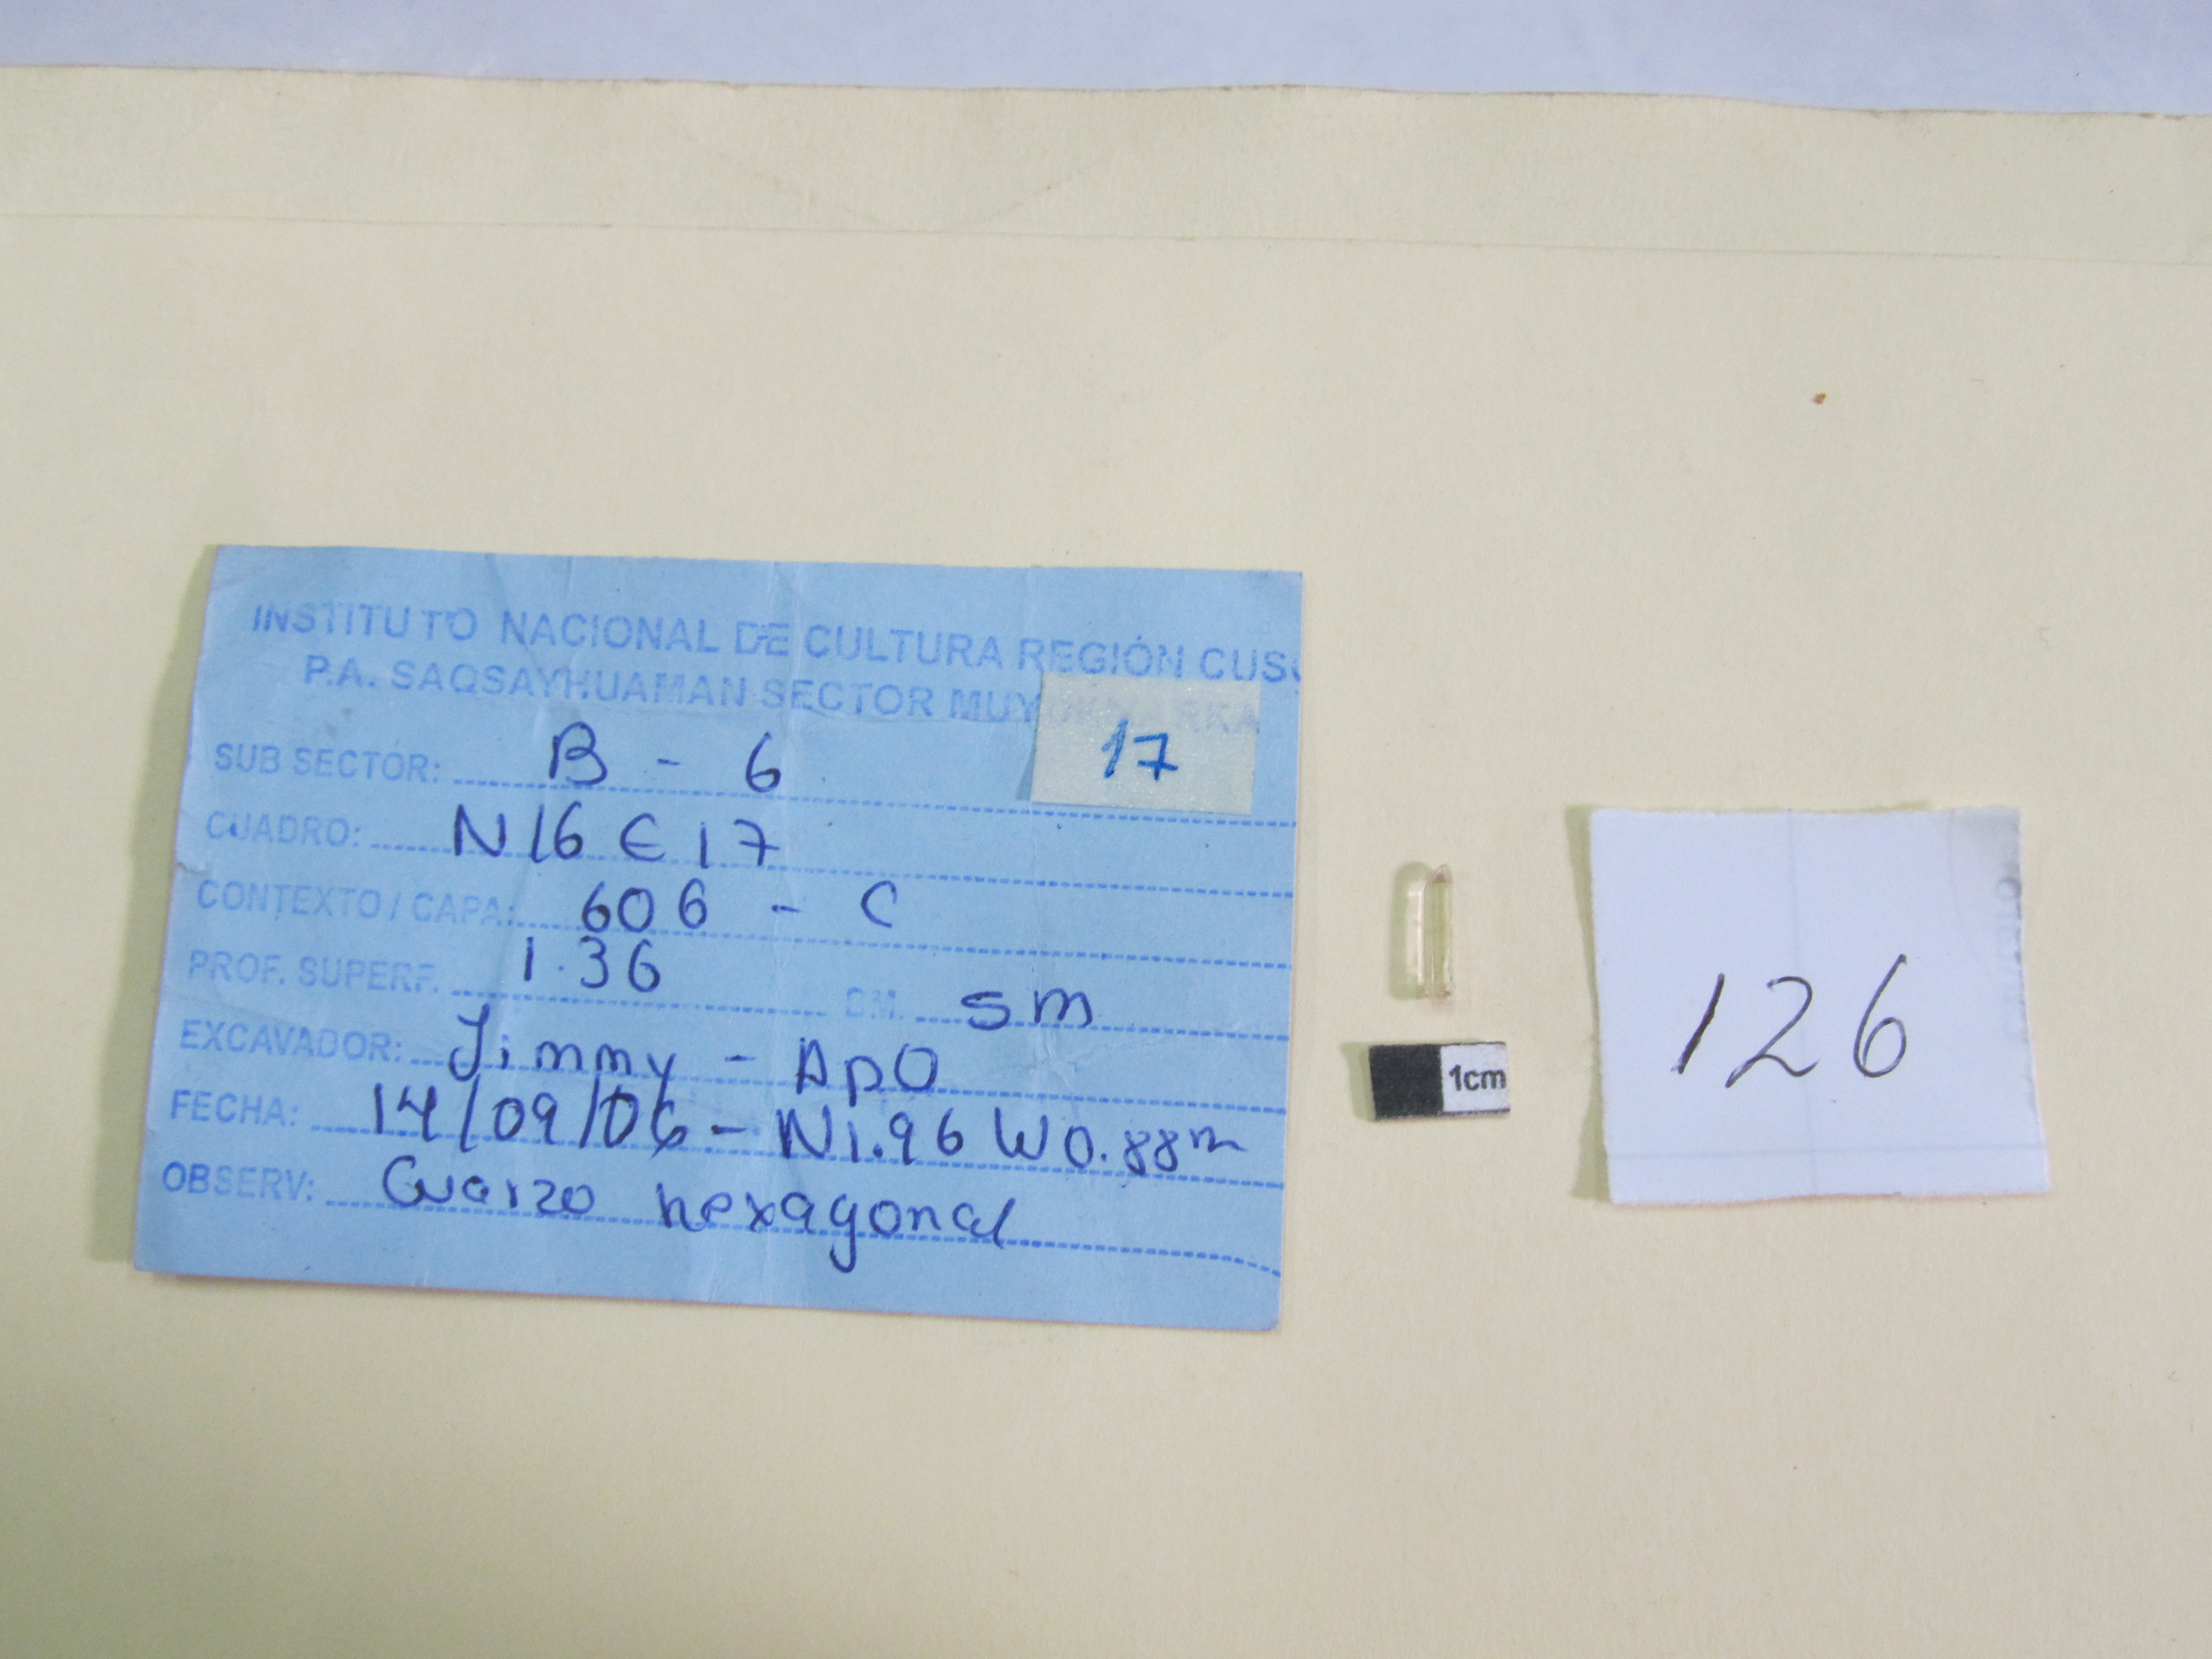 INSTITUTO NACIONAL DE CULTURA REGIÓN CUSC
P.A. SAQSAYHUAMAN SECTOR MUYUKMARKA
17
SUB SECTOR: B - 6
CUADRO: N16 E17
CONTEXTO / CAPA: 606 - C
PROF. SUPERF. 1.36 CM. SM
EXCAVADOR: Jimmy - ApO
FECHA: 14/09/06 - N1.96 W0.88m
OBSERV: Cuarzo hexagonal
1cm
126